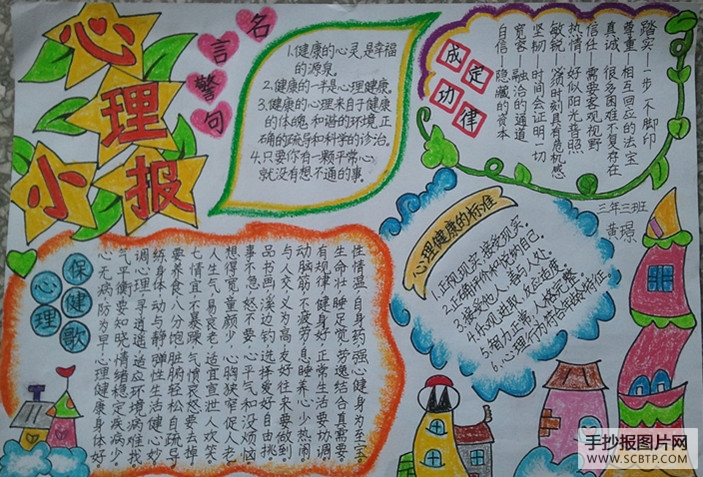 心理小报
名言警句
1.健康的心灵,是幸福
的源泉。
2.健康的一半是心理健康。
3.健康的心理来自于健康
的体魄,和谐的环境,正
确的疏导和科学的诊治。
4.只要你有一颗平常心,
就没有想不通的事。
成功定律
踏实—一步一个脚印
尊重—相互回应的法宝
真诚—很多困难不复存在
信任—需要客观视野
热情—好似阳光普照
敏锐—落时刻具有危机感
坚韧—时间会证明一切
宽容—融洽的通道
自信—隐藏的资本
三年三班
黄璟
心理健康的标准
1.正视现实,接受现实。
3.接受他人,善与人处
4.乐观进取,适应适度。
5.智力正常,人格完整。
6.心理行为符合年龄特征。
心理保健歌
性情温和自身药,强心健身为至宝。
生命壮睡足觉,劳逸结合真需要。
有规律健身好,正常生活要协调。
动脑筋不疲劳,息睡养心少热闹。
与人交义为高,友好往来要做到。
品书画溪边钓,选择爱好自由挑。
事不急怒不要,心平气和没烦恼。
想得宽童颜少,心胸狭窄促人老。
人生气易衰老,适宜宣泄人欢笑。
七情宜不暴躁,气愤哀怒要去掉。
要养食八分饱,脏腑轻松自疏导。
练身体动与静,弹性生活健心妙。
调心理寻逍遥,适应环境病难找。
气平衡要知晓,情绪稳定疾病少。
心无病防为早,心理健康身体好。
手抄报图片网
WWW.SCBTP.COM